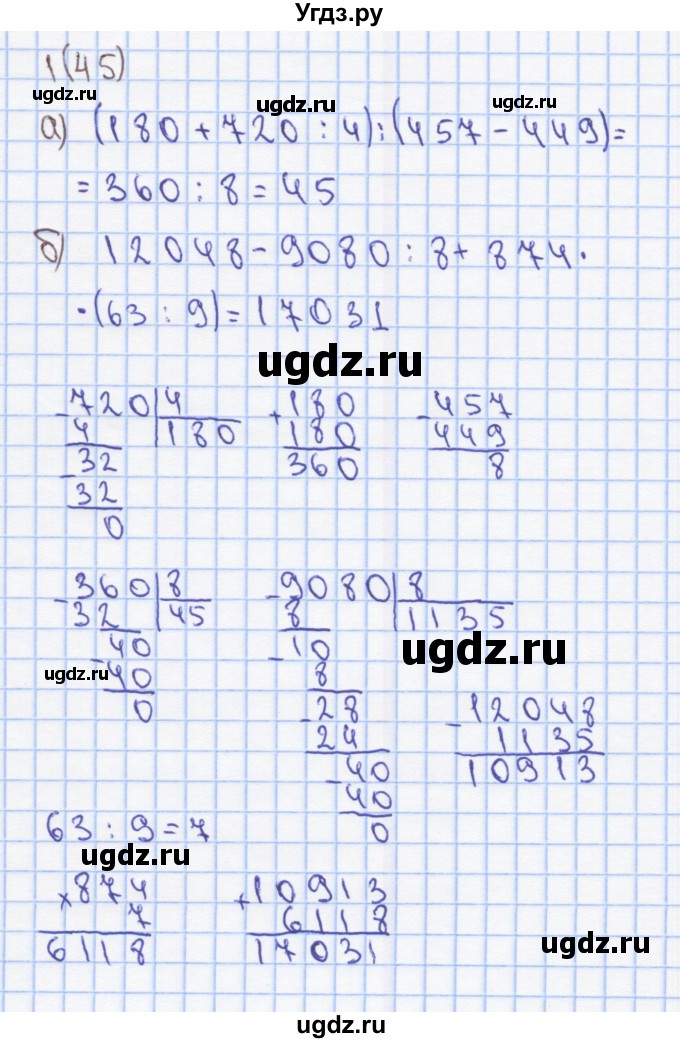 Угдз.ру
1(45)
ugdz.ru ugdz.ru ugdz.ru
а) (180 + 720 : 4) : (457 - 449) =
= 360 : 8 = 45
б) 12048 - 9080 : 8 + 874 ·
· (63 : 9) = 17031
ugdz.ru
- 720 | 4 + 180 - 457
4 180 180 449
- 32 360 8
32
0
- 360 | 8 - 9080 | 8
32 45 8 1135
- 40 - 10
ugdz.ru ugdz.ru
40 8
0 - 28 - 12048
24 1135
- 40 10913
40
63 : 9 = 7 0
ugdz.ru
× 874 + 10913
7 6118
6118 17031
ugdz.ru
ugdz.ru
ugdz.ru